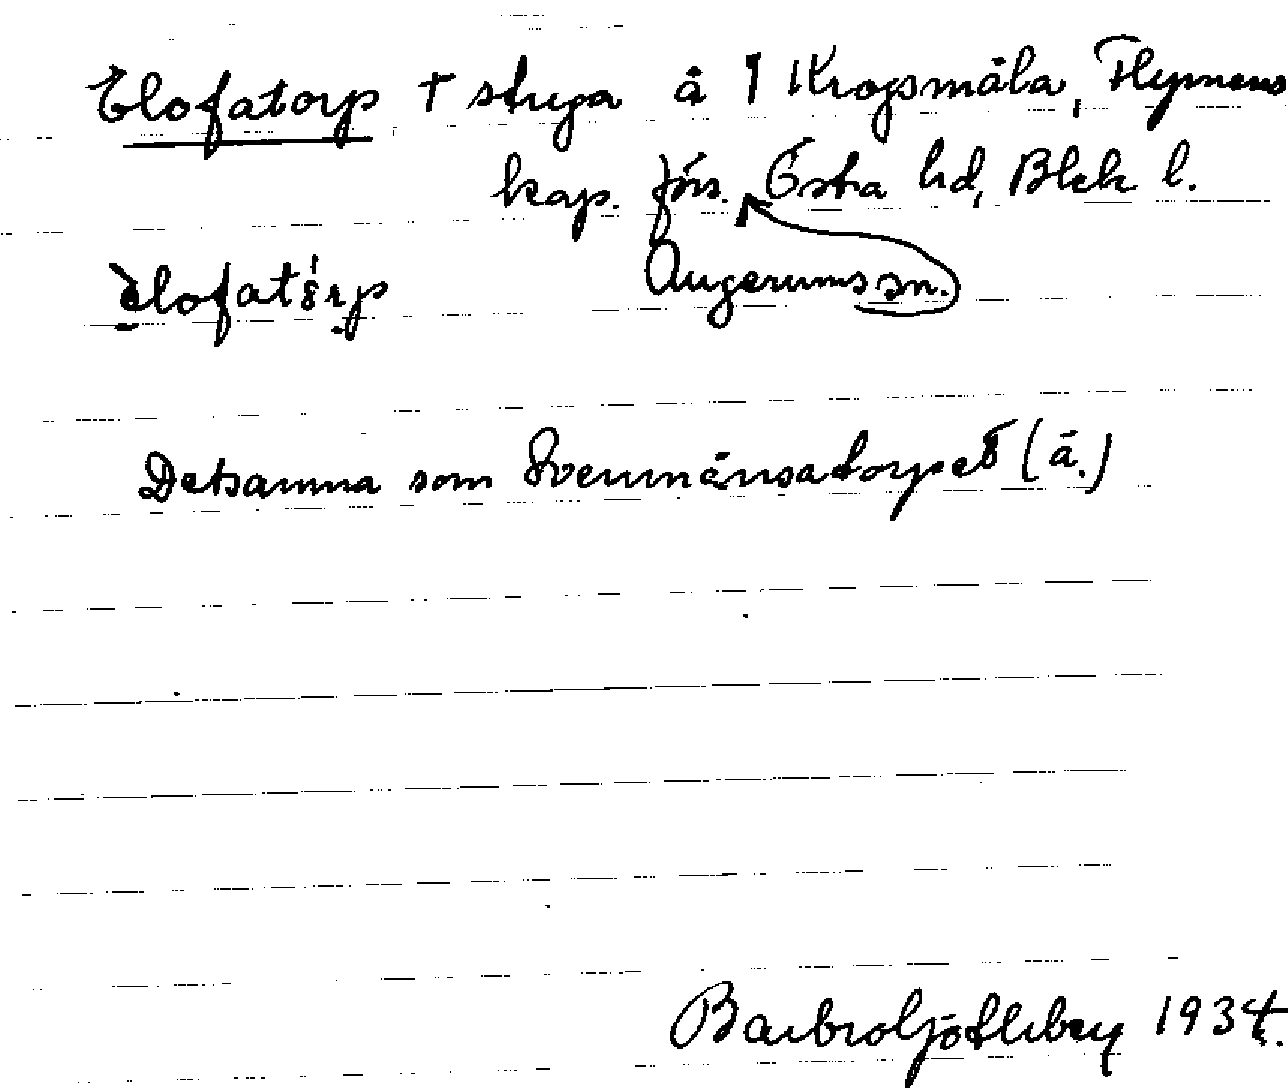 Elofatorp † stuga å 1 Krogsmåla, Flymens
kap. förs. Östra hd, Blek l.
Augerums sn.
elofatorp
Detsamma som Svenmånsatorpet (ä.)
1934.